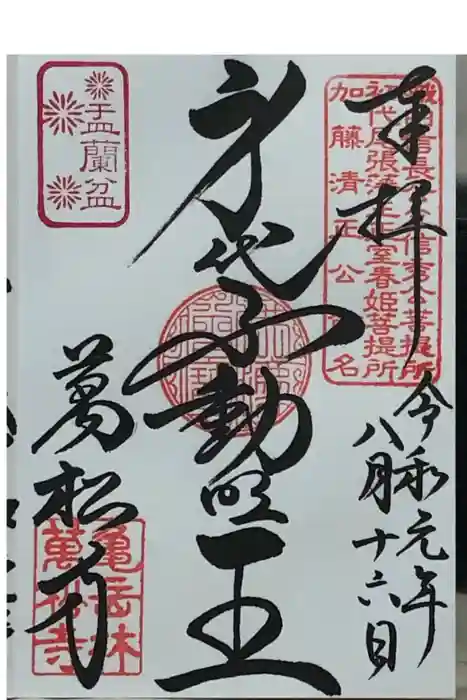 奉拝
令和元年
八月十六日
織田信長公父信秀公菩提所
初代尾張藩主正室春姫菩提所
加藤清正公 名
身代不動明王
盂蘭盆
萬松寺
亀岳林
萬松寺